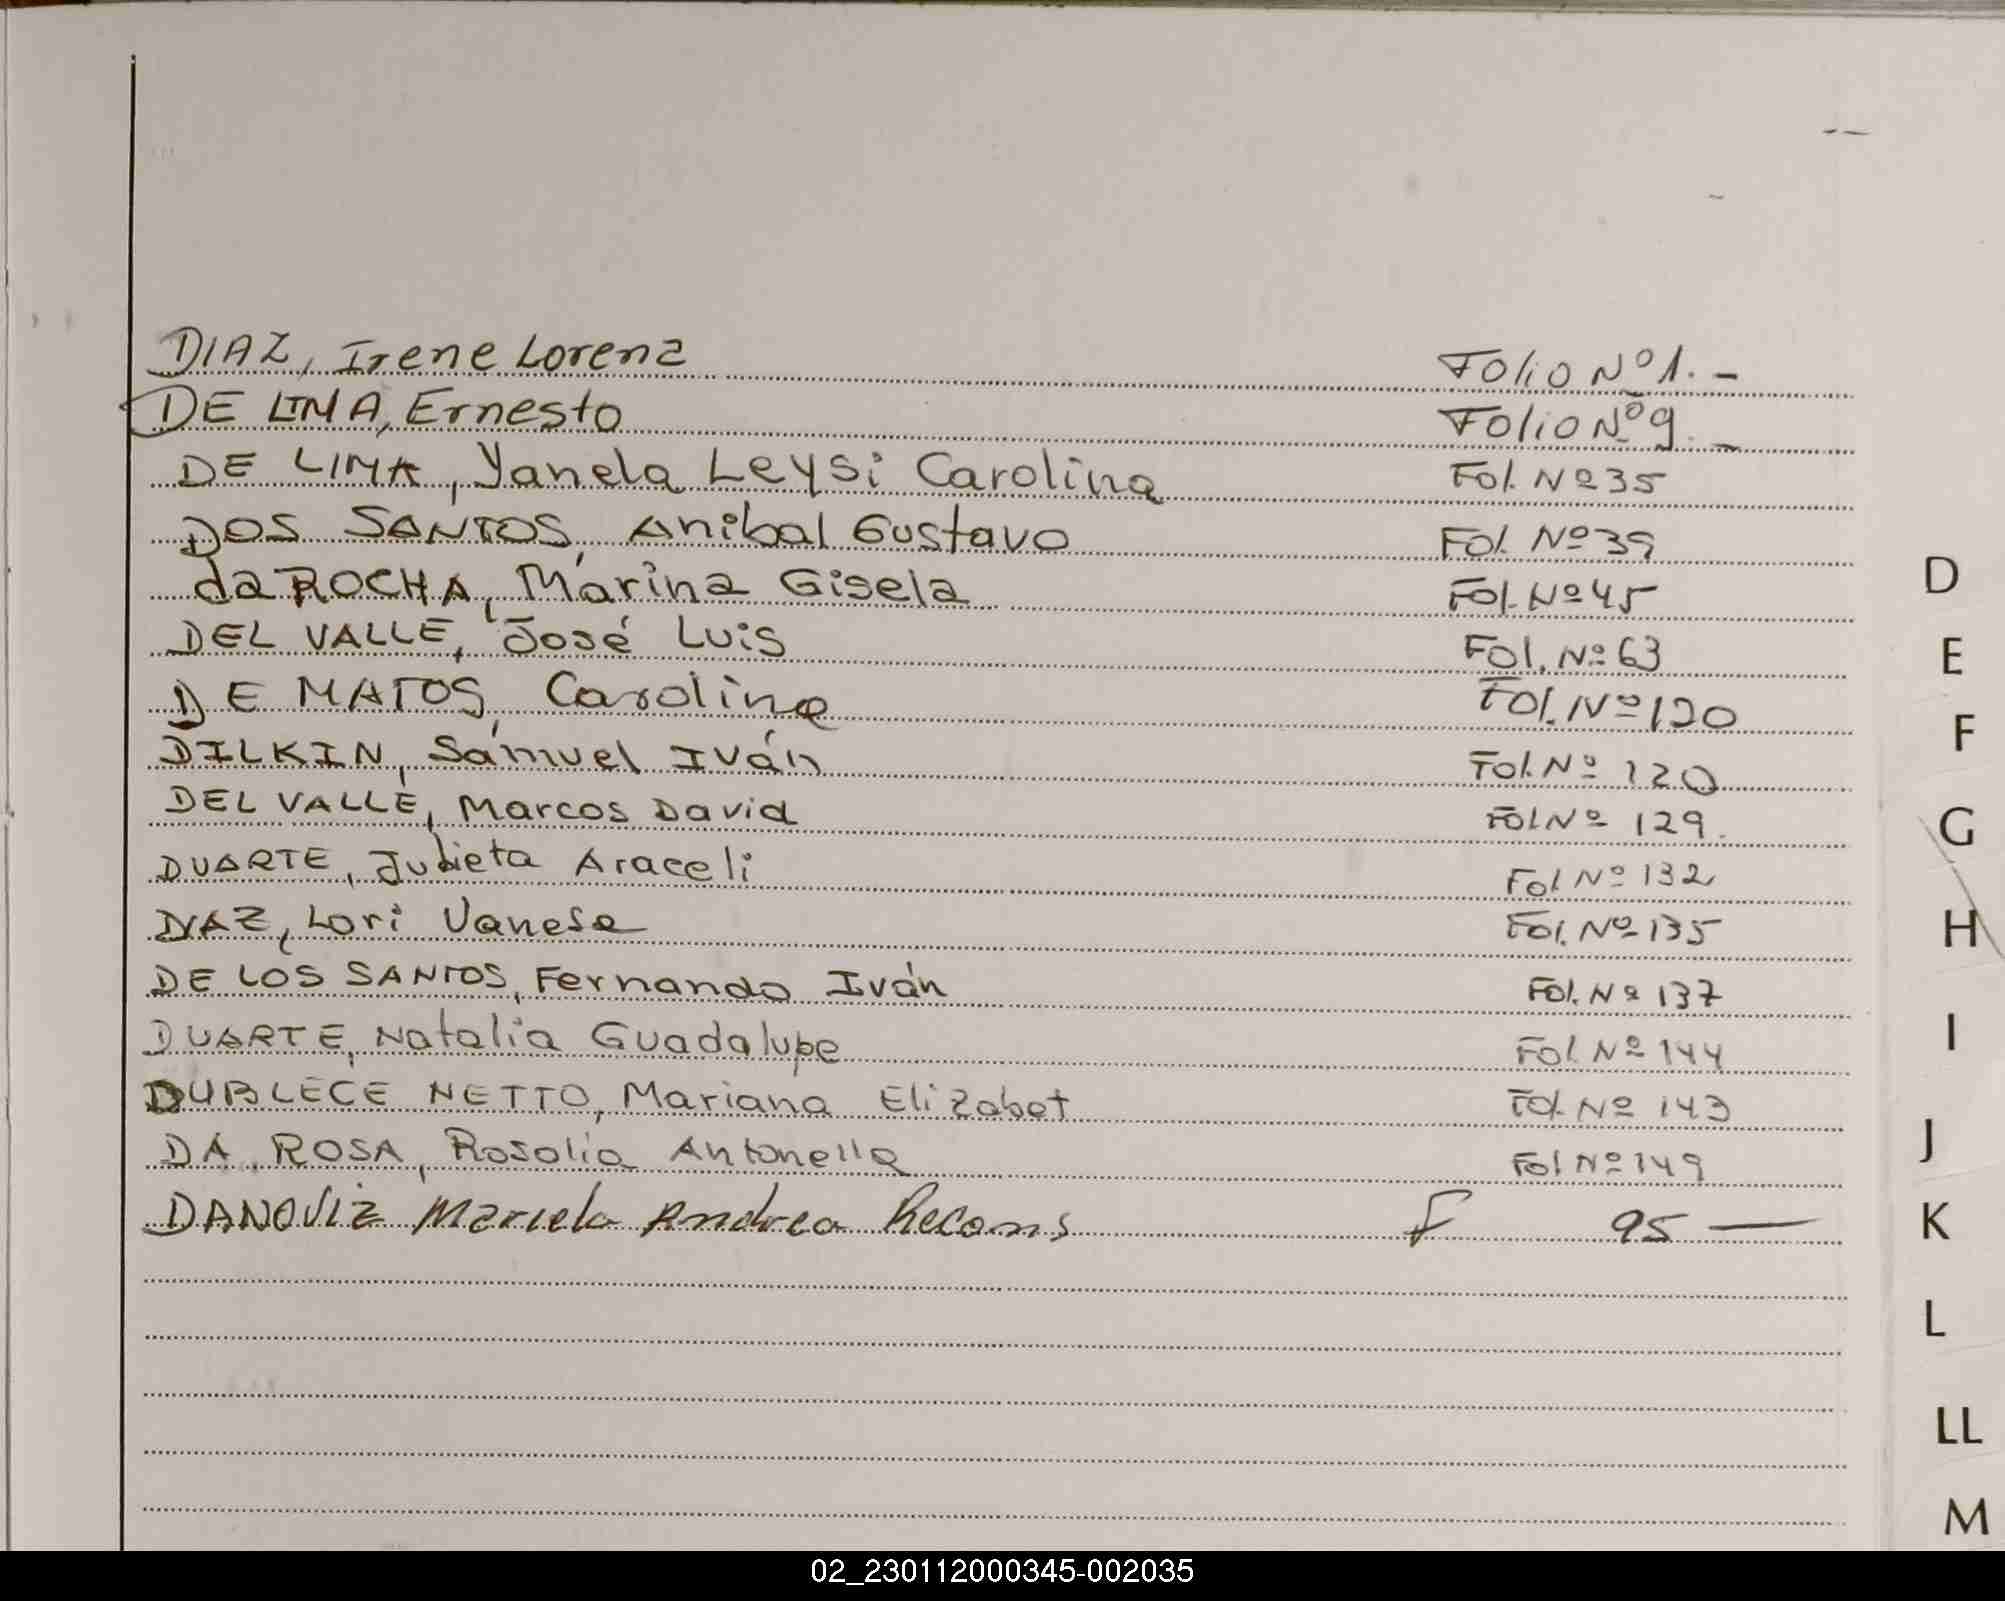 DIAZ, Irene Lorena Folio Nº 1. -
DE LIMA, Ernesto Folio Nº 9. -
DE LIMA, Yanela Leysi Carolina Fol. Nº 35
DOS SANTOS, Anibal Gustavo Fol. Nº 39
da ROCHA, Marina Gisela Fol. Nº 45
DEL VALLE, José Luis Fol. Nº 63
DE MATOS, Carolina Fol. Nº 120
DILKIN, Samuel Iván Fol. Nº 120
DEL VALLE, Marcos David Fol Nº 129.
DUARTE, Julieta Araceli Fol Nº 132
DIAZ, Lori Vanesa Fol. Nº 135
DE LOS SANTOS, Fernando Iván Fol. Nº 137
DUARTE, Natalia Guadalupe Fol. Nº 144
DUBLECE NETTO, Mariana Elizabet Fol. Nº 143
DA ROSA, Rosalia Antonella Fol Nº 149
DANOVIZ Mariela Andrea Recons F 95 —
D
E
F
G
H
I
J
K
L
LL
M
02_230112000345-002035